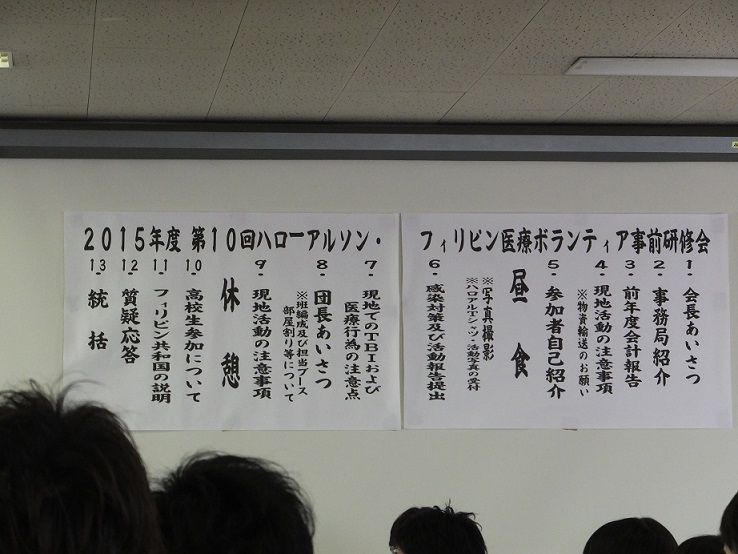 2015年度 第10回ハローアルソン・フィリピン医療ボランティア事前研修会
1・会長あいさつ
2・事務局紹介
3・前年度会計報告
4・現地活動の注意事項
※物資輸送のお願い
5・参加者自己紹介
昼食
※写真撮影
※ハロアルTシャツ・活動写真の受付
6・感染対策及び活動報告提出
7・現地でのTBIおよび
医療行為の注意点
8・団長あいさつ
※班編成及び担当ブース
部屋割り等について
9・現地活動の注意事項
休憩
10・高校生参加について
11・フィリピン共和国の説明
12・質疑応答
13・統括